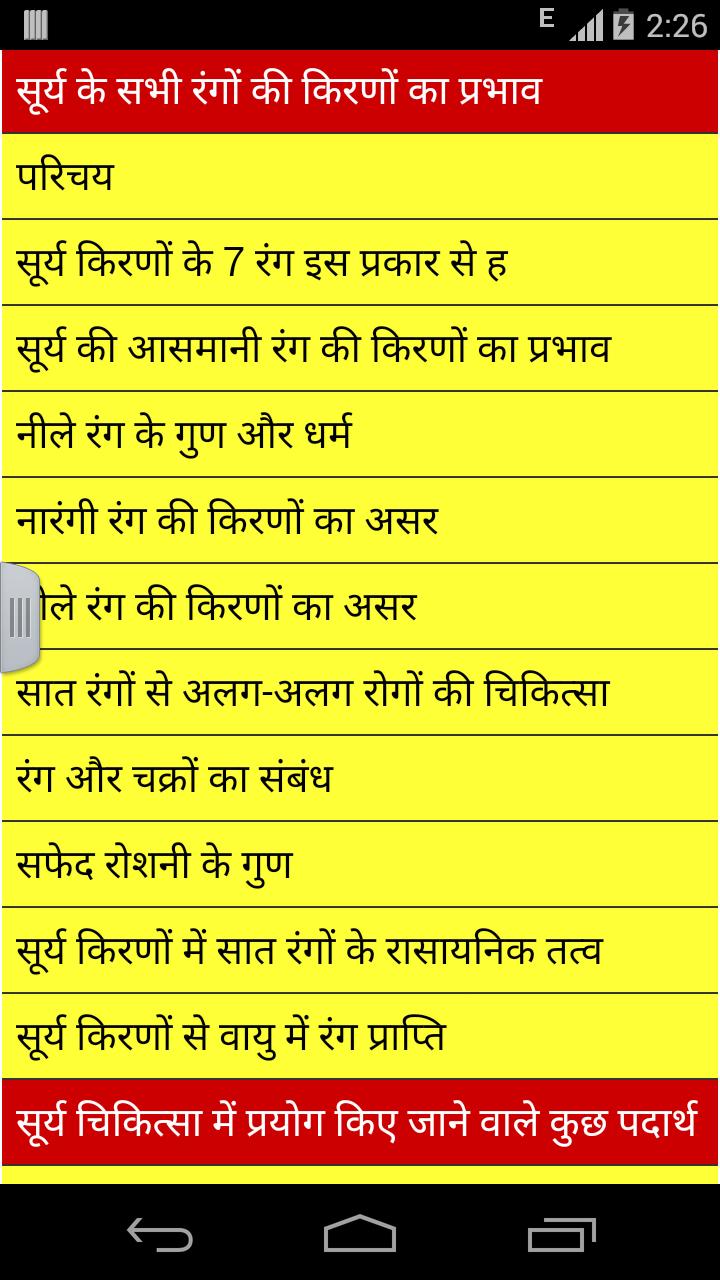 E 2:26
सूर्य के सभी रंगों की किरणों का प्रभाव
परिचय
सूर्य किरणों के 7 रंग इस प्रकार से ह
सूर्य की आसमानी रंग की किरणों का प्रभाव
नीले रंग के गुण और धर्म
नारंगी रंग की किरणों का असर
रंग की किरणों का असर
सात रंगों से अलग-अलग रोगों की चिकित्सा
रंग और चक्रों का संबंध
सफेद रोशनी के गुण
सूर्य किरणों में सात रंगों के रासायनिक तत्व
सूर्य किरणों से वायु में रंग प्राप्ति
सूर्य चिकित्सा में प्रयोग किए जाने वाले कुछ पदार्थ